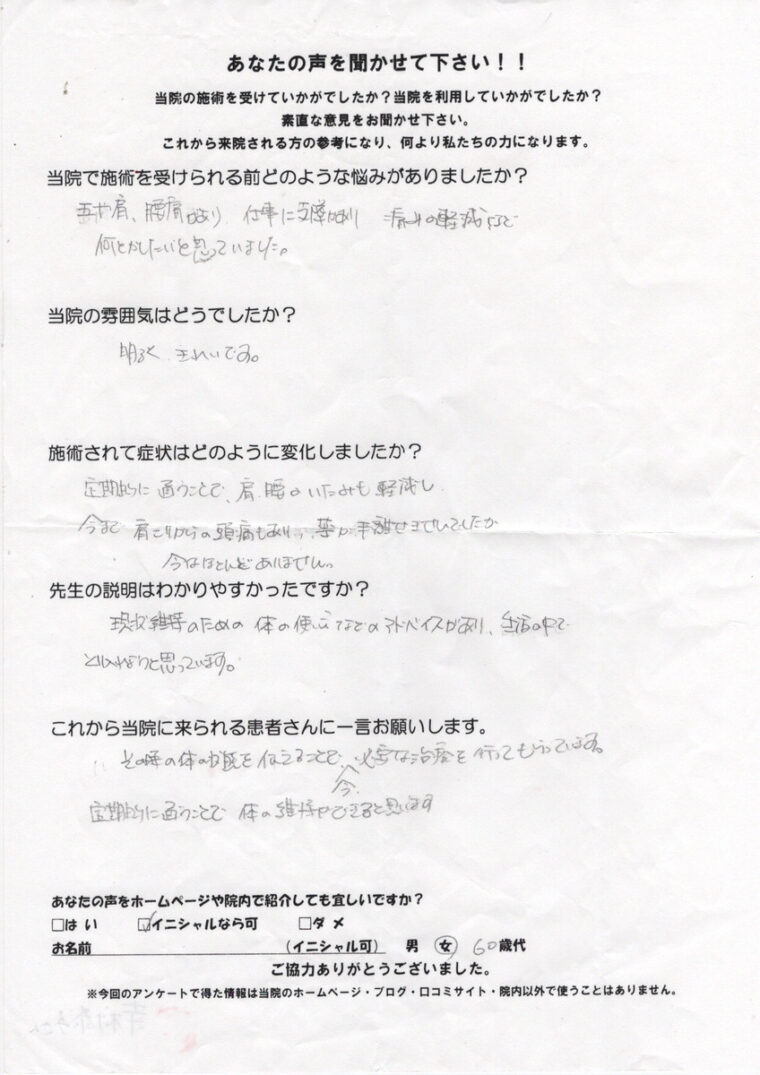 あなたの声を聞かせて下さい！！
当院の施術を受けていかがでしたか？当院を利用していかがでしたか？
素直な意見をお聞かせ下さい。
これから来院される方の参考になり、何より私たちの力になります。
当院で施術を受けられる前どのような悩みがありましたか？
五十肩、腰肩があり 仕事に支障があり 痛みの軽減
何とかしたいと思っていました。
当院の雰囲気はどうでしたか？
明るく、きれいです。
施術されて症状はどのように変化しましたか？
定期的に通うことで、肩、腰のいたみも軽減し
今まで 肩こりからの頭痛もあり、薬が手離せませんでしたが
今はほとんどありません。
先生の説明はわかりやすかったですか？
現状維持のための 体の使い方などのアドバイスがあり、生活の中で
とり入れようと思っています。
これから当院に来られる患者さんに一言お願いします。
その時の体の状態を伝えることで、今、必要な治療を行ってもらっています。
定期的に通うことで 体の維持ができると思います
あなたの声をホームページや院内で紹介しても宜しいですか？
□はい ☑イニシャルなら可 □ダメ
お名前 (イニシャル可) 男 女 60歳代
ご協力ありがとうございました。
※今回のアンケートで得た情報は当院のホームページ・ブログ・口コミサイト・院内以外で使うことはありません。